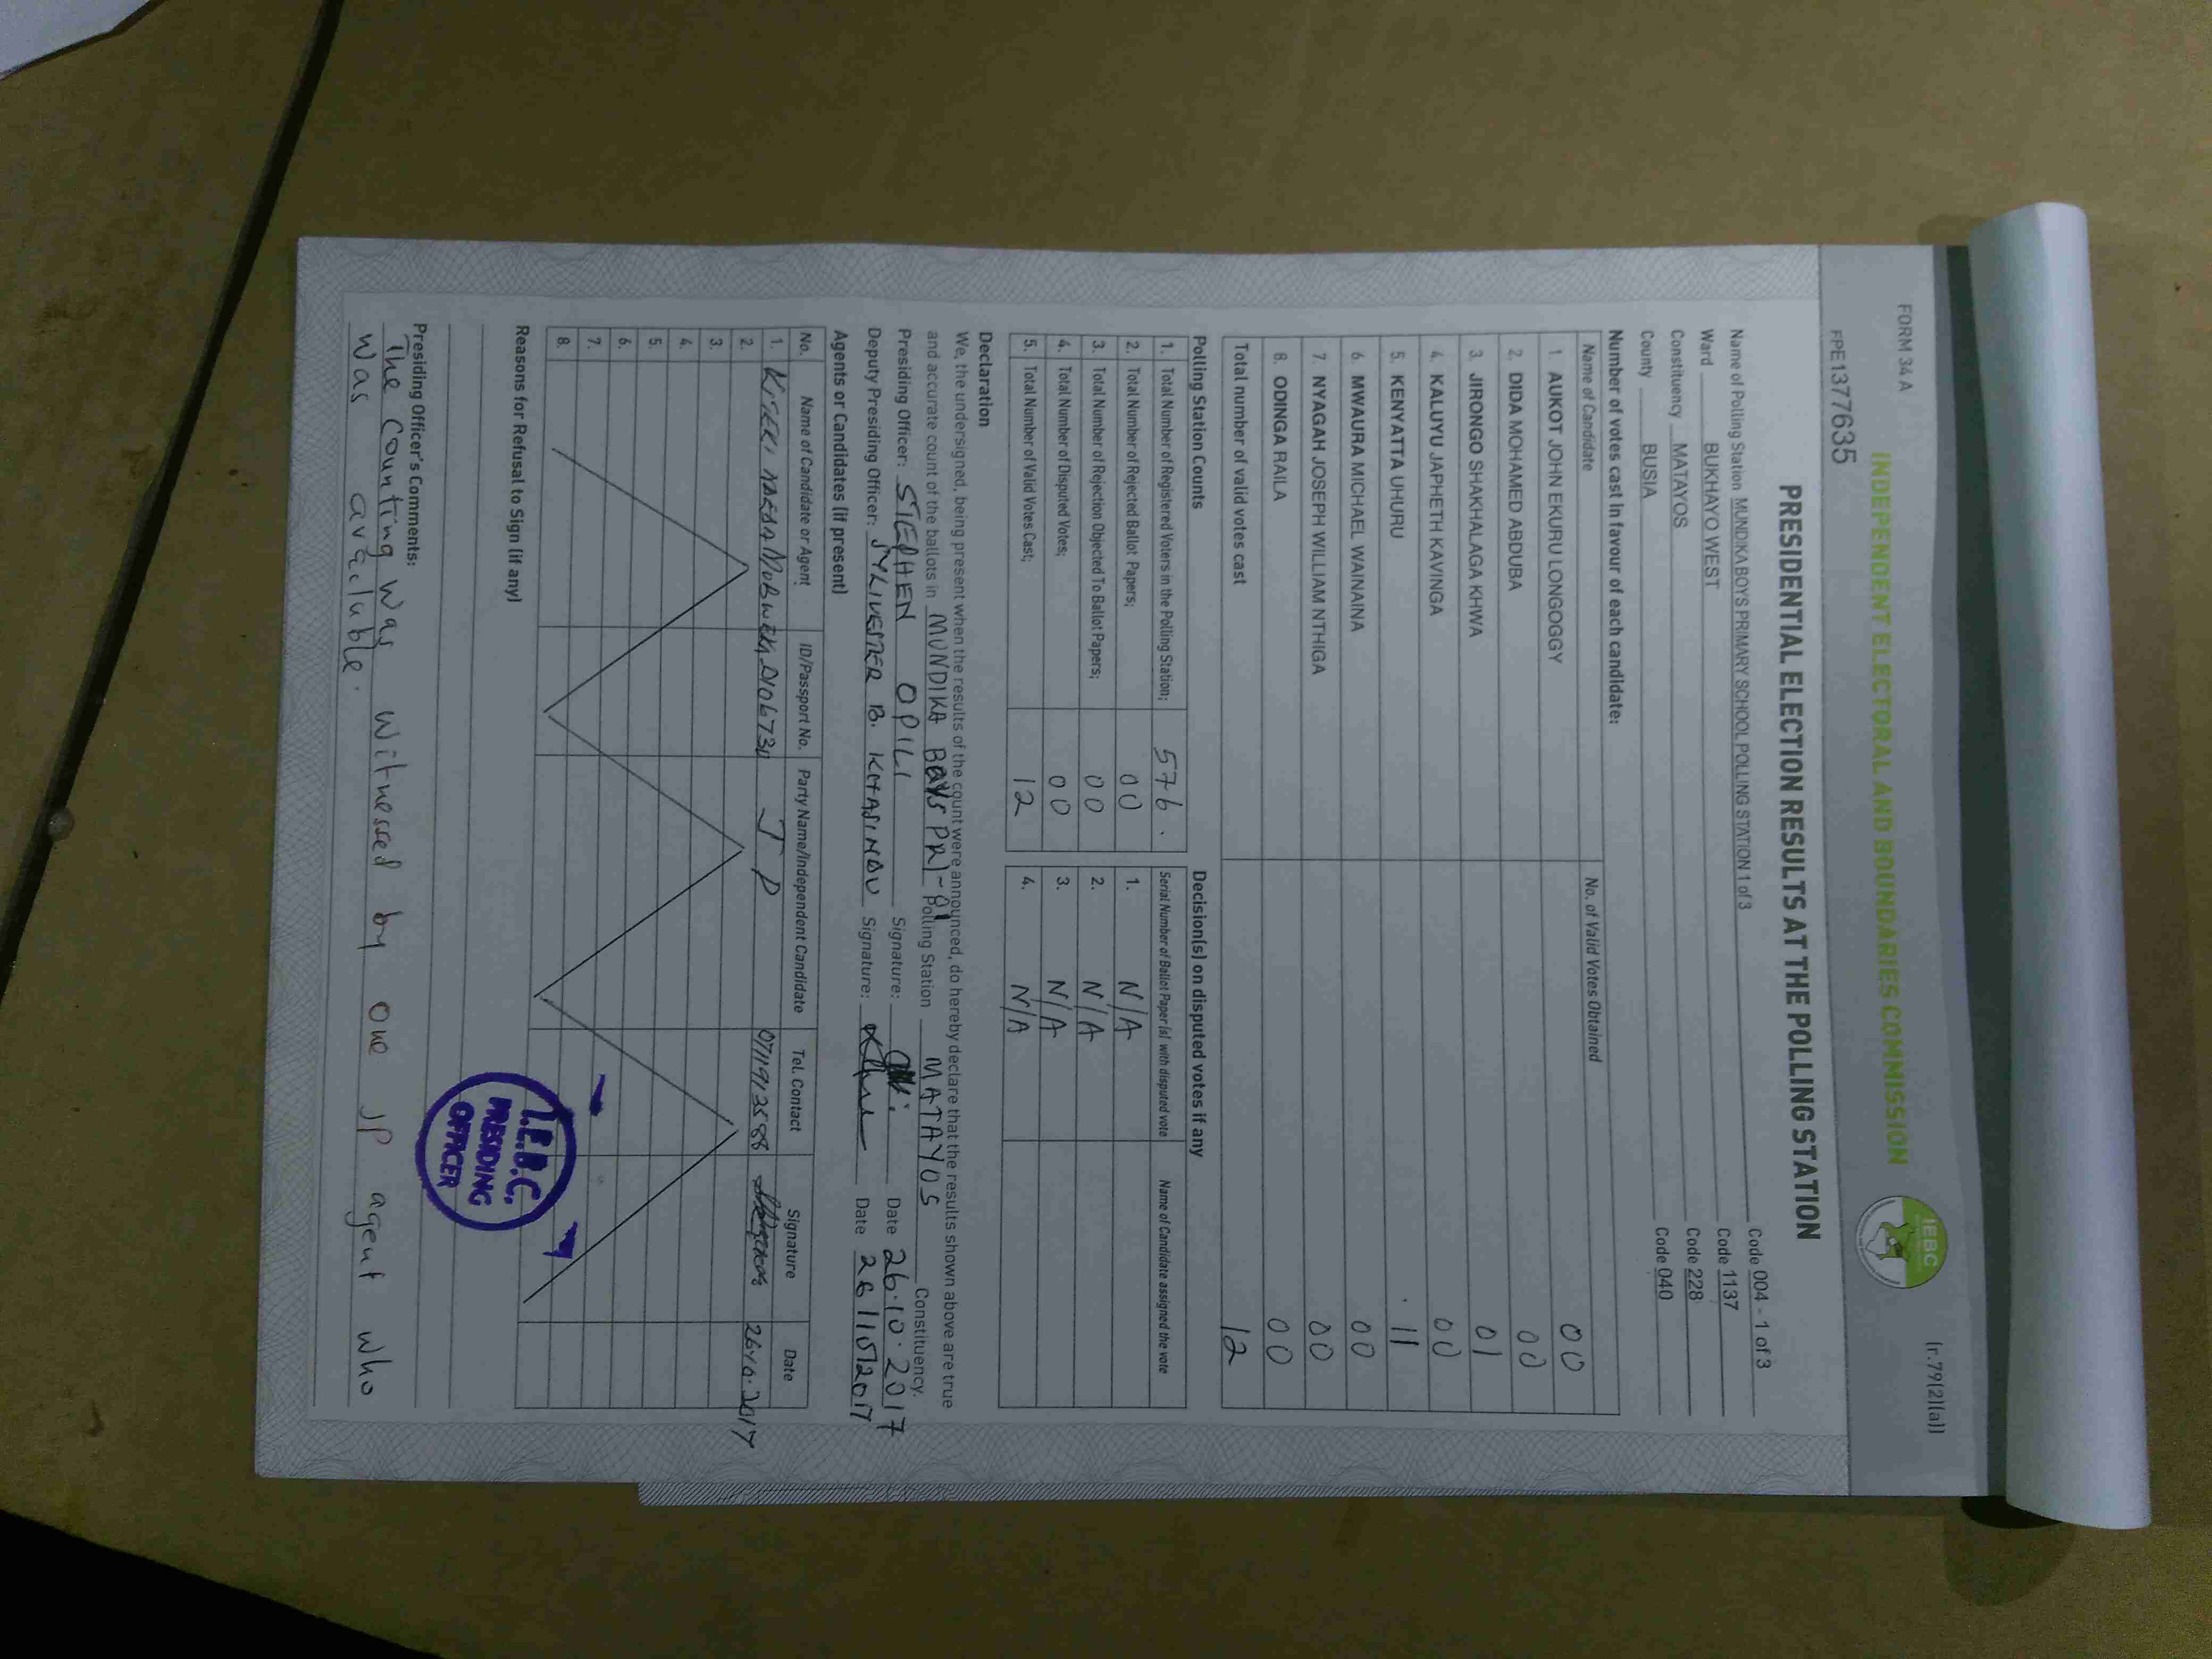 FORM 34 A
(r.79(2)(a))
INDEPENDENT ELECTORAL AND BOUNDARIES COMMISSION
IEBC
FPE1377635
PRESIDENTIAL ELECTION RESULTS AT THE POLLING STATION
Name of Polling Station MUNDIKA BOYS PRIMARY SCHOOL POLLING STATION 1 of 3 Code 004 - 1 of 3
Ward BUKHAYO WEST Code 1137
Constituency MATAYOS Code 228
County BUSIA Code 040
Number of votes cast in favour of each candidate:
Name of Candidate No. of Valid Votes Obtained
1. AUKOT JOHN EKURU LONGOGGY 00
2. DIDA MOHAMED ABDUBA 00
3. JIRONGO SHAKHALAGA KHWA 01
4. KALUYU JAPHETH KAVINGA 00
5. KENYATTA UHURU 11
6. MWAURA MICHAEL WAINAINA 00
7. NYAGAH JOSEPH WILLIAM NTHIGA 00
8. ODINGA RAILA 00
Total number of valid votes cast 12
Polling Station Counts Decision(s) on disputed votes if any
1. Total Number of Registered Voters in the Polling Station; 576. Serial Number of Ballot Paper(s) with disputed vote Name of Candidate assigned the vote
2. Total Number of Rejected Ballot Papers; 00 1. N/A
3. Total Number of Rejection Objected To Ballot Papers; 00 2. N/A
4. Total Number of Disputed Votes; 00 3. N/A
5. Total Number of Valid Votes Cast; 12 4. N/A
Declaration
We, the undersigned, being present when the results of the count were announced, do hereby declare that the results shown above are true
and accurate count of the ballots in MUNDIKA BOYS PRI- Polling Station MATAYOS Constituency.
Presiding Officer: STEPHEN OPILI Signature: Date 26.10.2017
Deputy Presiding Officer: SYLIVESTER B. Signature: Date 26/10/2017
Agents or Candidates (if present)
No. Name of Candidate or Agent ID/Passport No. Party Name/Independent Candidate Tel. Contact Signature Date
1. JP 0711913588
2.
3.
4.
5.
6.
7.
8.
Reasons for Refusal to Sign (if any)
I.E.B.C.
PRESIDING
OFFICER
Presiding Officer's Comments:
The counting was witnessed by one JP agent who
was available.